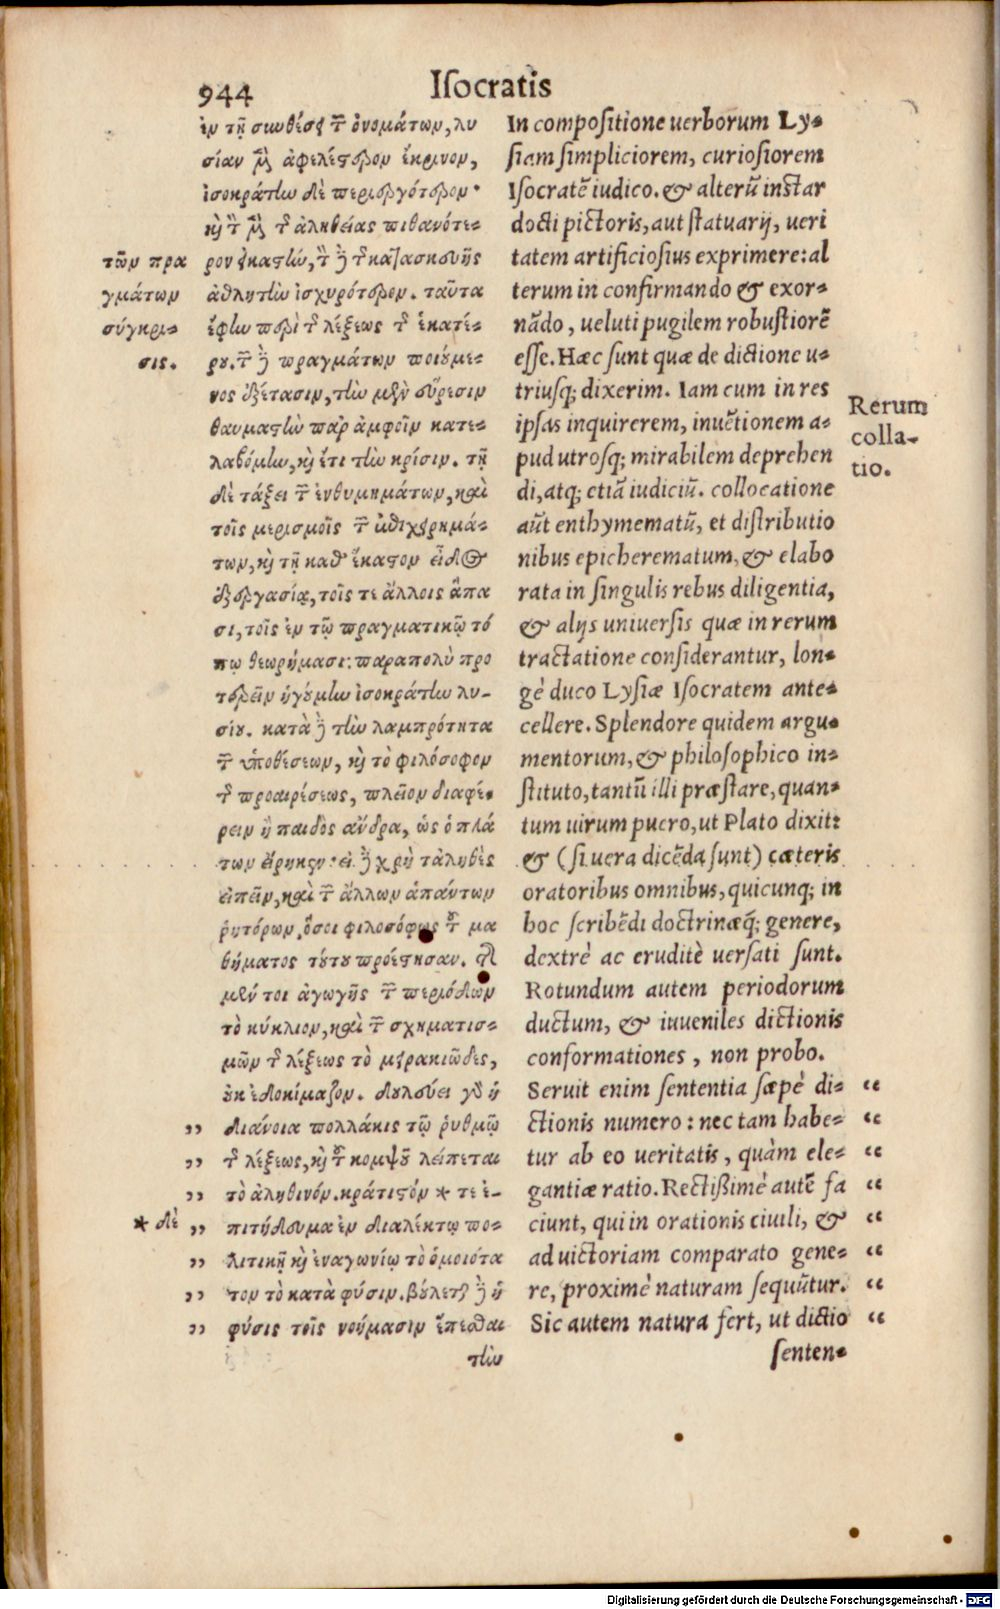 944 Isocratis
ἐν τῇ συνθέσει τῶν ὀνομάτων, λυ
σίαν μὲν ἀφελέστερον ἔκρινον,
ἰσοκράτην δὲ περιεργότερον·
καὶ τὸν μὲν τῆς ἀληθείας πιθανότε-
ρον εἰκαστὴν, τὸν δὲ τῆς κατασκευῆς
ἀθλητὴν ἰσχυρότερον. ταῦτα
ἔφην περὶ τῆς λέξεως τῆς ἑκατέ-
ρου. τῶν δὲ πραγμάτων ποιούμε-
νος ἐξέτασιν, τὴν μὲν εὕρεσιν
θαυμαστὴν παρ ἀμφοῖν κατε-
λαβόμην, καὶ ἔτι τὴν κρίσιν. τῇ
δὲ τάξει τῶν ἐνθυμημάτων, καὶ
τοῖς μερισμοῖς τῶν ἐπιχειρημά-
των, καὶ τῇ καθ' ἕκαστον εἶδος
ἐξεργασίᾳ, τοῖς τε ἄλλοις ἅπα
σι, τοῖς ἐν τῷ πραγματικῷ τό
πῳ θεωρήμασι: παραπολὺ προ
τερεῖν ἡγούμην ἰσοκράτην λυ-
σίου. κατὰ δὲ τὴν λαμπρότητα
τῶν ὑποθέσεων, καὶ τὸ φιλόσοφον
τῆς προαιρέσεως, πλεῖον διαφέ-
ρειν ἢ παιδὸς ἀνδρα, ὡς ὁ πλά
των εἴρηκεν: εἰ δὲ χρὴ τἀληθὲς
εἰπεῖν, καὶ τῶν ἄλλων ἁπάντων
ῥητόρων, ὅσοι φιλοσόφως τοῦ μα
θήματος τούτου προέστησαν. τῆς
μέν τοι ἀγωγῆς τῶν περιόδων
τὸ κύκλιον, καὶ τῶν σχηματισ-
μῶν τῆς λέξεως τὸ μειρακιῶδες,
οὐκ ἐδοκίμαζον. δουλεύει γὰρ ἡ
„ διάνοια πολλάκις τῷ ῥυθμῷ
„ τῆς λέξεως, καὶ τοῦ κομψοῦ λείπεται
„ τὸ ἀληθινόν. κράτιστόν * τε ἐ-
„ πιτήδευμα ἐν διαλέκτῳ πο-
„ λιτικῇ καὶ ἐναγωνίῳ τὸ ὁμοιότα
„ τον τὸ κατὰ φύσιν. βούλεται δὲ ἡ
„ φύσις τοῖς νοήμασιν ἕπεσθαι
τὴν
τῶν πρα
γμάτων
σύγκρι-
σις.
* δὲ
In compositione uerborum Ly-
siam simpliciorem, curiosiorem
Isocratē iudico. & alterū instar
docti pictoris, aut statuarij, ueri
tatem artificiosius exprimere: al
terum in confirmando & exor-
nādo, ueluti pugilem robustiorē
esse. Hæc sunt quæ de dictione u-
triusq; dixerim. Iam cum in res
ipsas inquirerem, inuētionem a-
pud utrosq; mirabilem deprehen
di, atq; etiā iudiciū. collocatione
aūt enthymematū, et distributio
nibus epicherematum, & elabo
rata in singulis rebus diligentia,
& alijs uniuersis quæ in rerum
tractatione considerantur, lon-
gè duco Lysiæ Isocratem ante-
cellere. Splendore quidem argu-
mentorum, & philosophico in-
stituto, tantū illi præstare, quan-
tum uirum puero, ut Plato dixit:
& (si uera dicēda sunt) cæteris
oratoribus omnibus, quicunq; in
hoc scribēdi doctrinæq́; genere,
dextrè ac eruditè uersati sunt.
Rotundum autem periodorum
ductum, & iuueniles dictionis
conformationes, non probo.
Seruit enim sententia sæpè di- “
ctionis numero: nec tam habe- “
tur ab eo ueritatis, quàm ele- “
gantiæ ratio. Rectißimè autē fa “
ciunt, qui in orationis ciuili, & “
ad uictoriam comparato gene- “
re, proximè naturam sequūtur. “
Sic autem natura fert, ut dictio “
senten-
Rerum
colla-
tio.
Digitalisierung gefördert durch die Deutsche Forschungsgemeinschaft - DFG